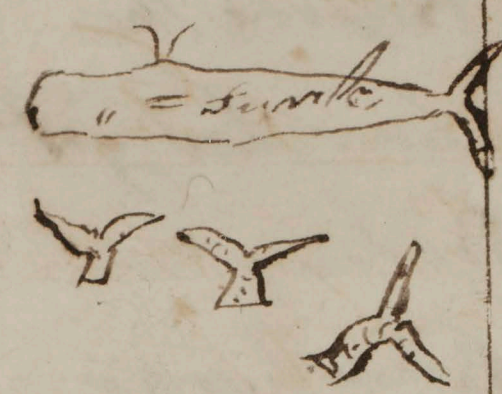 " = Sunk